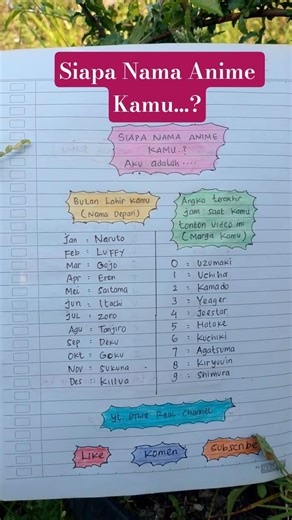 Siapa Nama Anime
Kamu...?
SIAPA NAMA ANIME
KAMU..?
AKU adalah....
Bulan Lahir Kamu
(Nama Depan)
Angka terakhir
jam saat kamu
tonton video ini
(Marga Kamu)
Jan : Naruto
Feb : LUFFY
Mar : Gojo
Apr : Eren
Mei : Saitama
Jun : Itachi
JUL : Zoro
Agu : Tanjiro
Sep : Deku
Okt : Goku
Nov : Sukuna
Des : Killua
0 = Uzumaki
1 = Uchiha
2 = Kamado
3 = Yeager
4 = Joestar
5 = Hatake
6 = Kuchiki
7 = Agatsuma
8 = Kiryuuin
9 = Shimura
Like
Komen
Subscribe